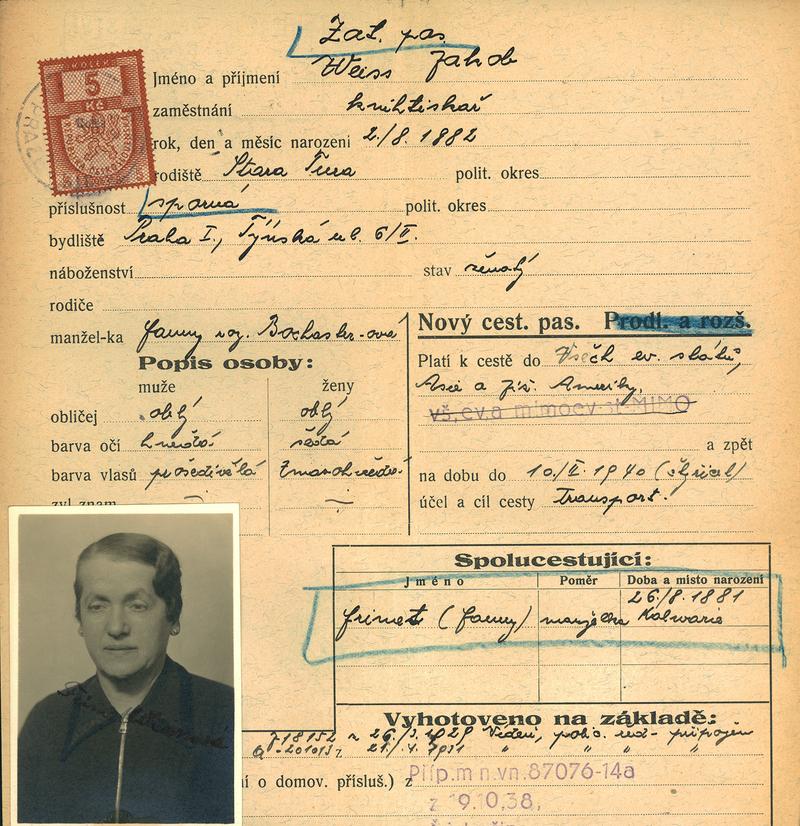 Zat. pas.
KOLEK
5
Kč
Jméno a příjmení Weiss Jakob
zaměstnání knihtiskař
rok, den a měsíc narození 2./8. 1882
rodiště Stara Tura polit. okres
příslušnost sporná polit. okres
bydliště Praha I., Týnská ul. 6/II.
náboženství stav ženatý
rodiče
manžel-ka Fanny roz.
Popis osoby:
muže ženy
obličej oblý oblý
barva očí hnědá šedá
barva vlasů prošedivělá tmavohnědé
zvl. znam.
Nový cest. pas. Prodl. a rozš.
Platí k cestě do Všech ev. států,
Asie a již. Ameriky.
vš. ev. a mimoev. st. MIMO
a zpět
na dobu do 10./II. 1940
účel a cíl cesty transport.
Spolucestující:
Jméno Poměr Doba a místo narození
26./8. 1881
Frimet (Fanny) manželka Kalwarie
Vyhotoveno na základě:
26./3. 1929 Vídeni, polic. řed.
21./4. 1931 " " " "
í o domov. přísluš.) z
Příp. m n. vn. 87076-14a
z 19.10.38,